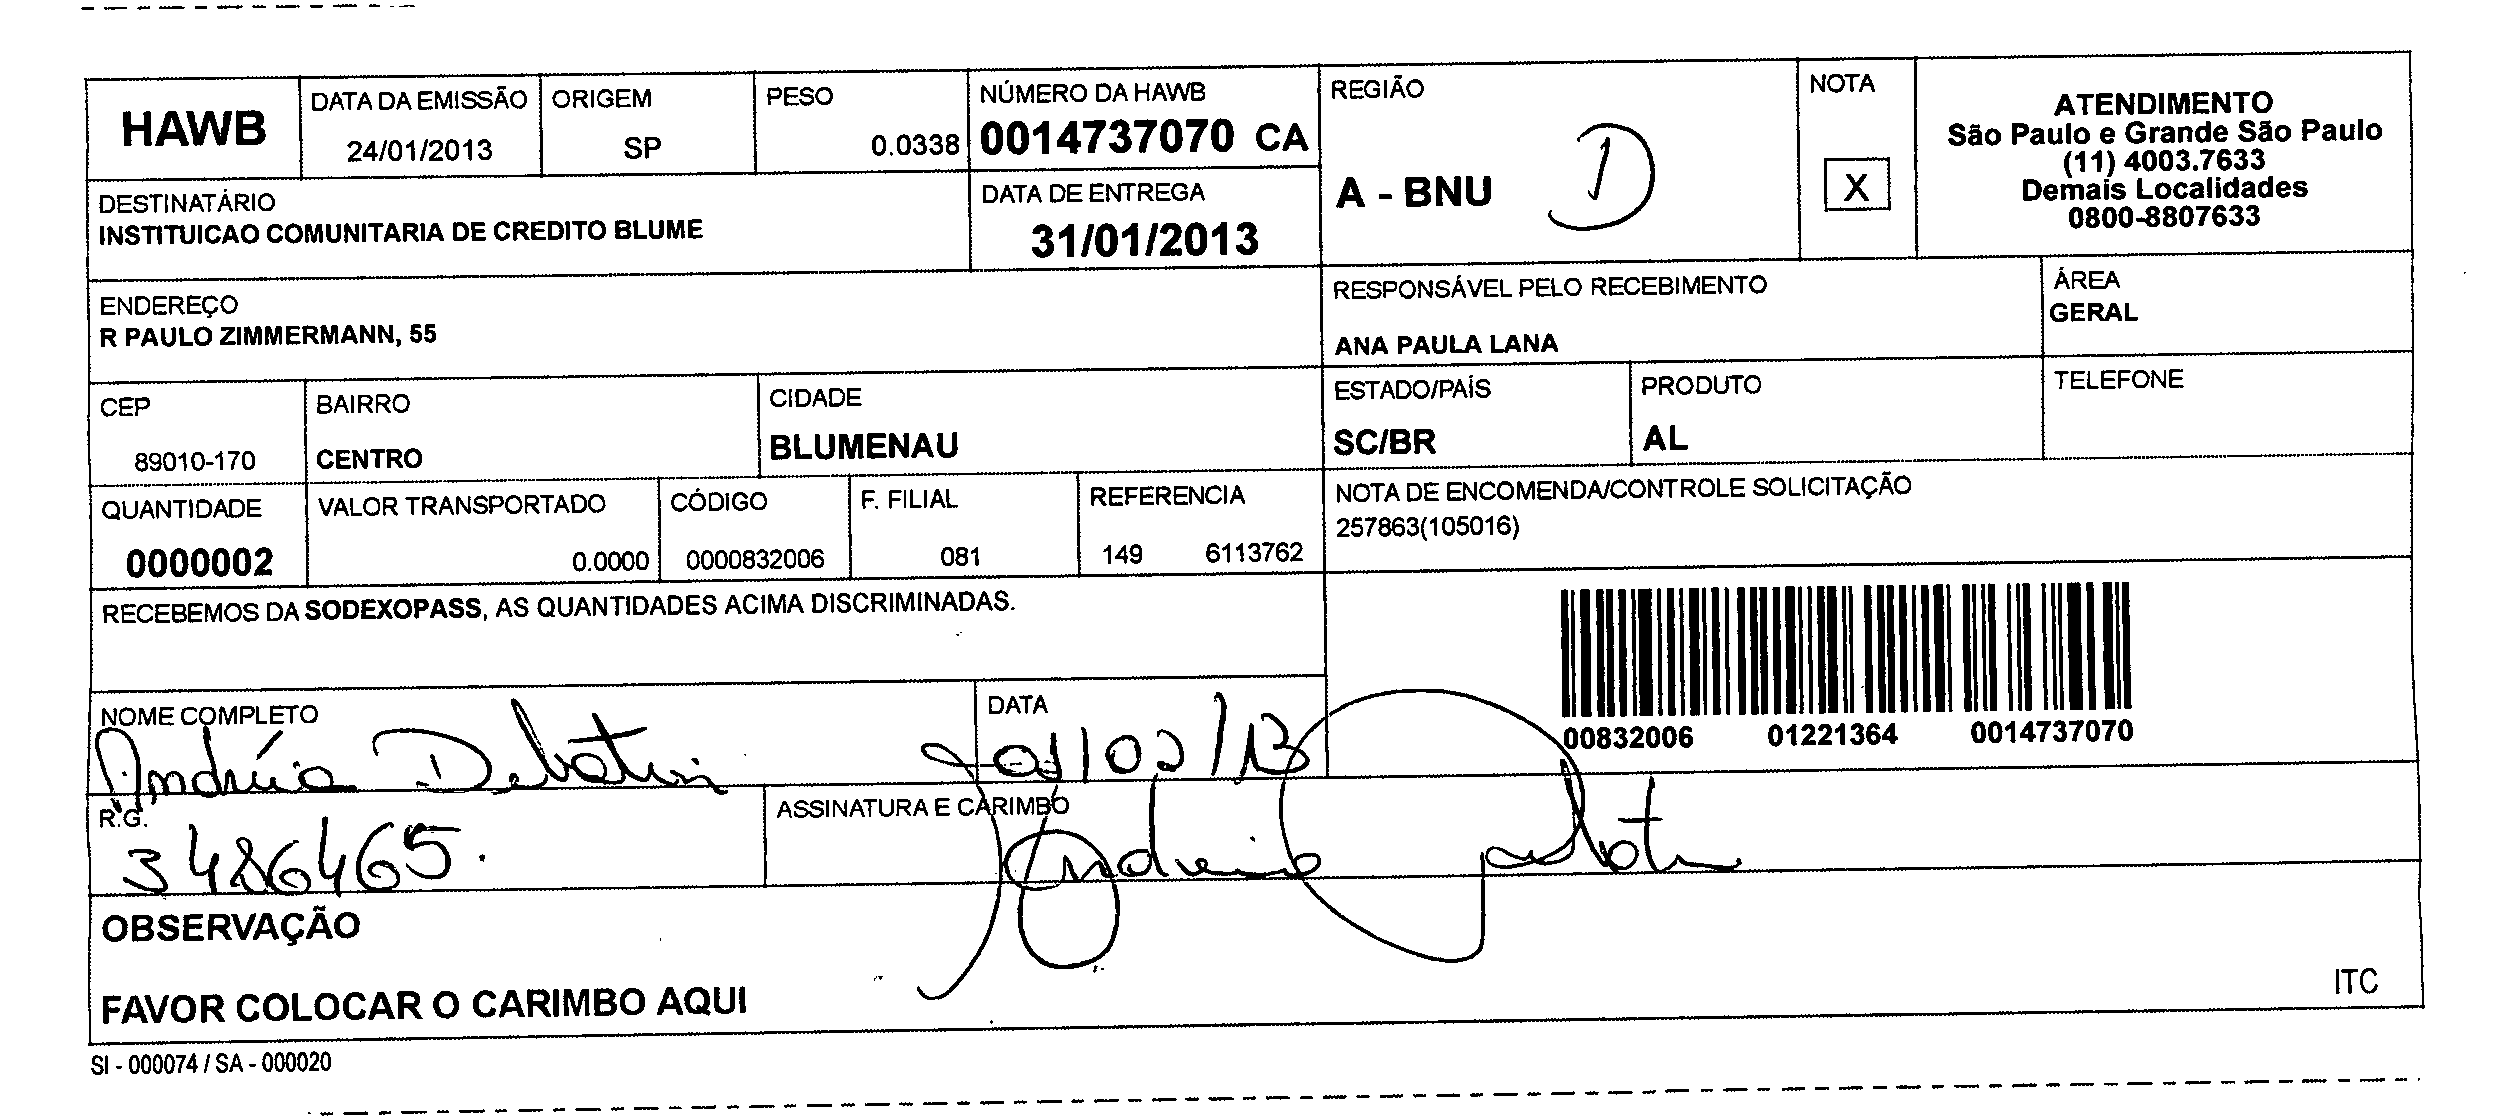 HAWB
DATA DA EMISSÃO
24/01/2013
ORIGEM
SP
PESO
0.0338
NÚMERO DA HAWB
0014737070 CA
REGIÃO
A - BNU
D
NOTA
X
ATENDIMENTO
São Paulo e Grande São Paulo
(11) 4003.7633
Demais Localidades
0800-8807633
DESTINATÁRIO
INSTITUICAO COMUNITARIA DE CREDITO BLUME
DATA DE ENTREGA
31/01/2013
ENDEREÇO
R PAULO ZIMMERMANN, 55
RESPONSÁVEL PELO RECEBIMENTO
ANA PAULA LANA
ÁREA
GERAL
CEP
89010-170
BAIRRO
CENTRO
CIDADE
BLUMENAU
ESTADO/PAÍS
SC/BR
PRODUTO
AL
TELEFONE
QUANTIDADE
0000002
VALOR TRANSPORTADO
0.0000
CÓDIGO
0000832006
F. FILIAL
081
REFERENCIA
149 6113762
NOTA DE ENCOMENDA/CONTROLE SOLICITAÇÃO
257863(105016)
RECEBEMOS DA SODEXOPASS, AS QUANTIDADES ACIMA DISCRIMINADAS.
00832006 01221364 0014737070
NOME COMPLETO
Andréia Debatin
DATA
01/02/13
R.G.
3486465.
ASSINATURA E CARIMBO
OBSERVAÇÃO
FAVOR COLOCAR O CARIMBO AQUI
ITC
SI - 000074 / SA - 000020